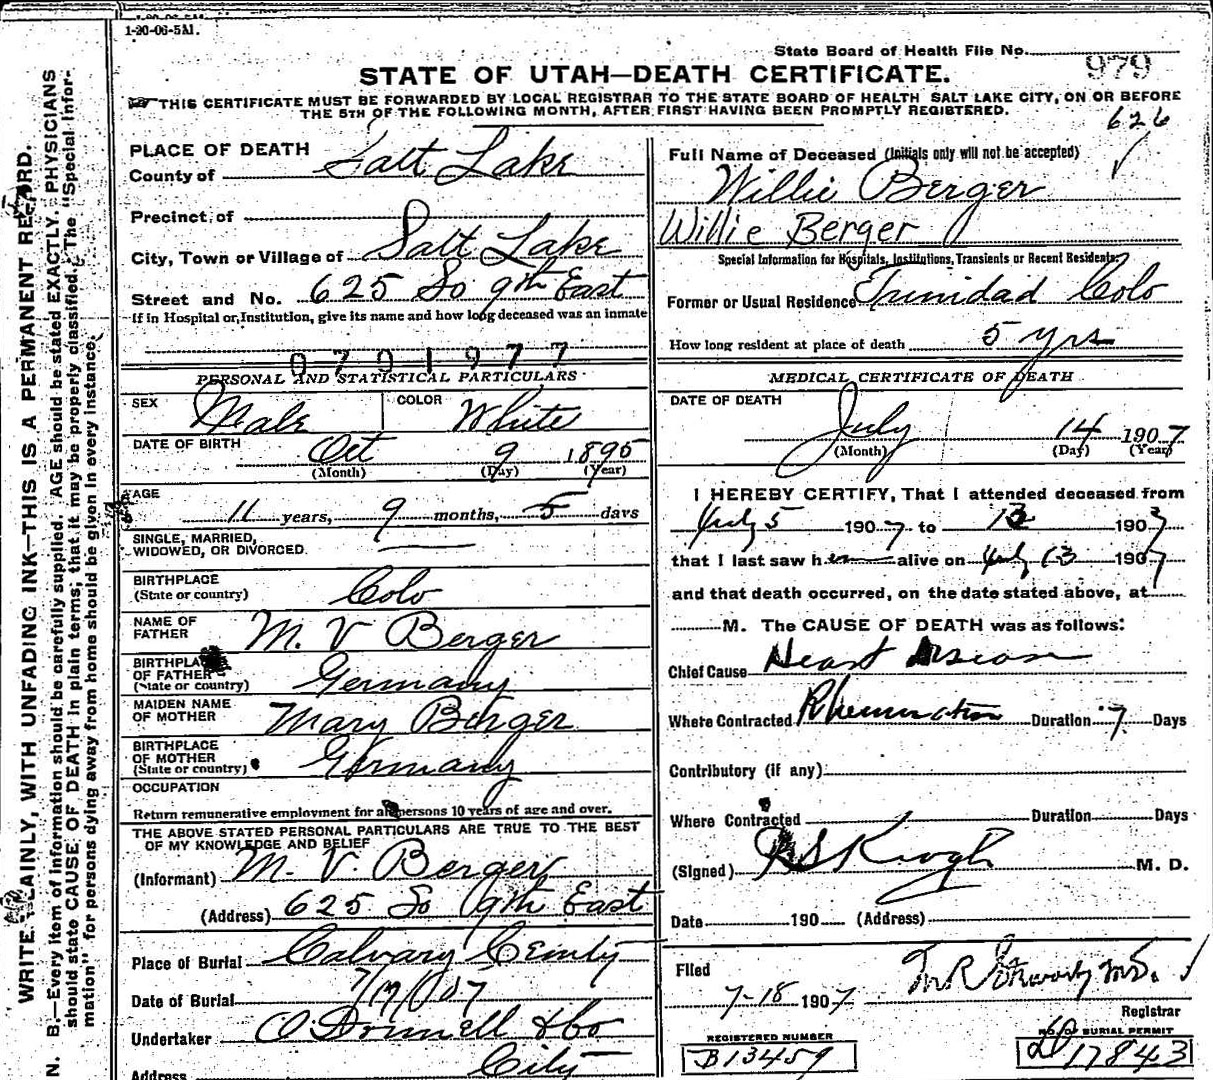 1-20-06-5M.
State Board of Health File No.
979
STATE OF UTAH—DEATH CERTIFICATE.
THIS CERTIFICATE MUST BE FORWARDED BY LOCAL REGISTRAR TO THE STATE BOARD OF HEALTH SALT LAKE CITY, ON OR BEFORE
THE 5TH OF THE FOLLOWING MONTH, AFTER FIRST HAVING BEEN PROMPTLY REGISTERED.
626
PLACE OF DEATH
County of Salt Lake
Precinct of
City, Town or Village of Salt Lake
Street and No. 625 So 9th East
If in Hospital or Institution, give its name and how long deceased was an inmate
0701977
PERSONAL AND STATISTICAL PARTICULARS
SEX Male COLOR White
DATE OF BIRTH Oct 9 1895
(Month) (Day) (Year)
AGE
11 years, 9 months, 5 days
SINGLE, MARRIED,
WIDOWED, OR DIVORCED
BIRTHPLACE
(State or country) Colo
NAME OF
FATHER M. V Berger
BIRTHPLACE
OF FATHER
(State or country) Germany
MAIDEN NAME
OF MOTHER Mary Berger
BIRTHPLACE
OF MOTHER
(State or country) Germany
OCCUPATION
Return remunerative employment for all persons 10 years of age and over.
THE ABOVE STATED PERSONAL PARTICULARS ARE TRUE TO THE BEST
OF MY KNOWLEDGE AND BELIEF
(Informant) M. V. Berger
(Address) 625 So 9th East
Place of Burial Calvary
Date of Burial
Undertaker O'Donnell & Co
Address City
Full Name of Deceased (Initials only will not be accepted)
Willie Berger
Willie Berger
Special Information for Hospitals, Institutions, Transients or Recent Residents.
Former or Usual Residence Trinidad Colo
How long resident at place of death 5 yrs
MEDICAL CERTIFICATE OF DEATH
DATE OF DEATH
July 14 1907
(Month) (Day) (Year)
I HEREBY CERTIFY, That I attended deceased from
July 5 1907 to 13 1907
that I last saw h alive on July 13 1907
and that death occurred, on the date stated above, at
M. The CAUSE OF DEATH was as follows:
Chief Cause Heart
Where Contracted Rheumatism Duration 7 Days
Contributory (if any)
Where Contracted Duration Days
(Signed) M. D.
Date 190 (Address)
Filed
7-18 1907
Registrar
REGISTERED NUMBER
B13459
NO. OF BURIAL PERMIT
17843
WRITE PLAINLY, WITH UNFADING INK—THIS IS A PERMANENT RECORD.
N. B.—Every item of information should be carefully supplied. AGE should be stated EXACTLY. PHYSICIANS
should state CAUSE OF DEATH in plain terms; that it may be properly classified. The "Special Infor-
mation" for persons dying away from home should be given in every instance.